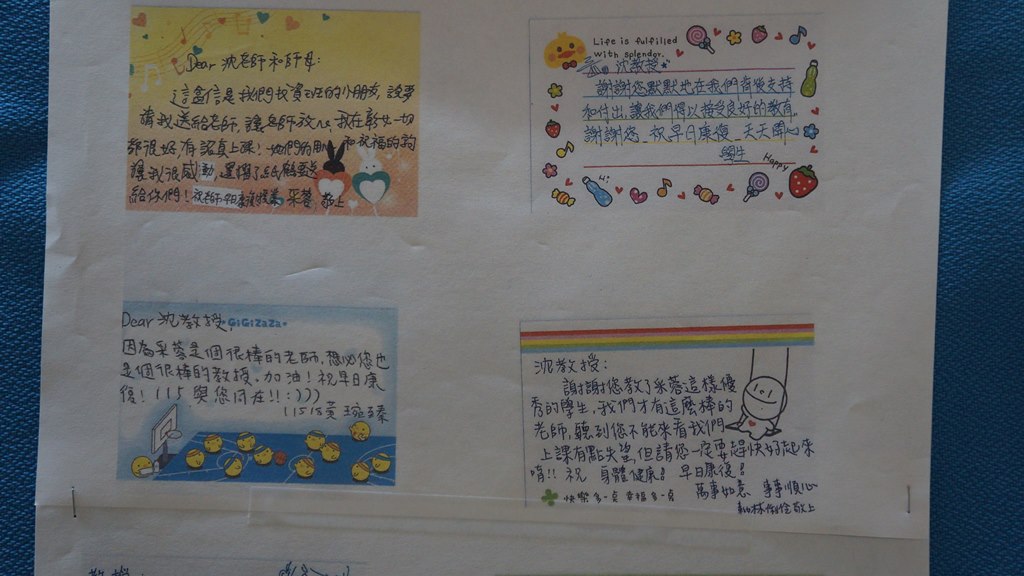 Dear 沈老師和師母:
這盒信是我們校實習班的小朋友, 說要
請我送給老師, 讓老師放心, 我在彰女一切
都很好, 有認真上課! 他們的用心和祝福的約
讓我很感動, 還摺了紙鶴要送
給你們! 祝老師早日康復 采蓉 敬上
Life is fulfilled
with splendor.
沈教授
謝謝您默默地在我們背後支持
和付出, 讓我們得以接受良好的教育,
謝謝您 祝早日康復 天天開心
學生
Happy
Hi
Dear 沈教授,
GiGiZaZa
因為采蓉是個很棒的老師, 想必您也
是個很棒的教授。加油! 祝早日康
復! 115與您同在!! :)))
11518黃琬臻
沈教授:
謝謝您教了采蓉這樣優
秀的學生, 我們才有這麼棒的
老師, 聽到您不能來看我們
上課有點失望, 但請您一定要趕快好起來
唷!! 祝 身體健康! 早日康復!
快樂多一點 幸福多一點
萬事如意 事事順心
敬上
教授